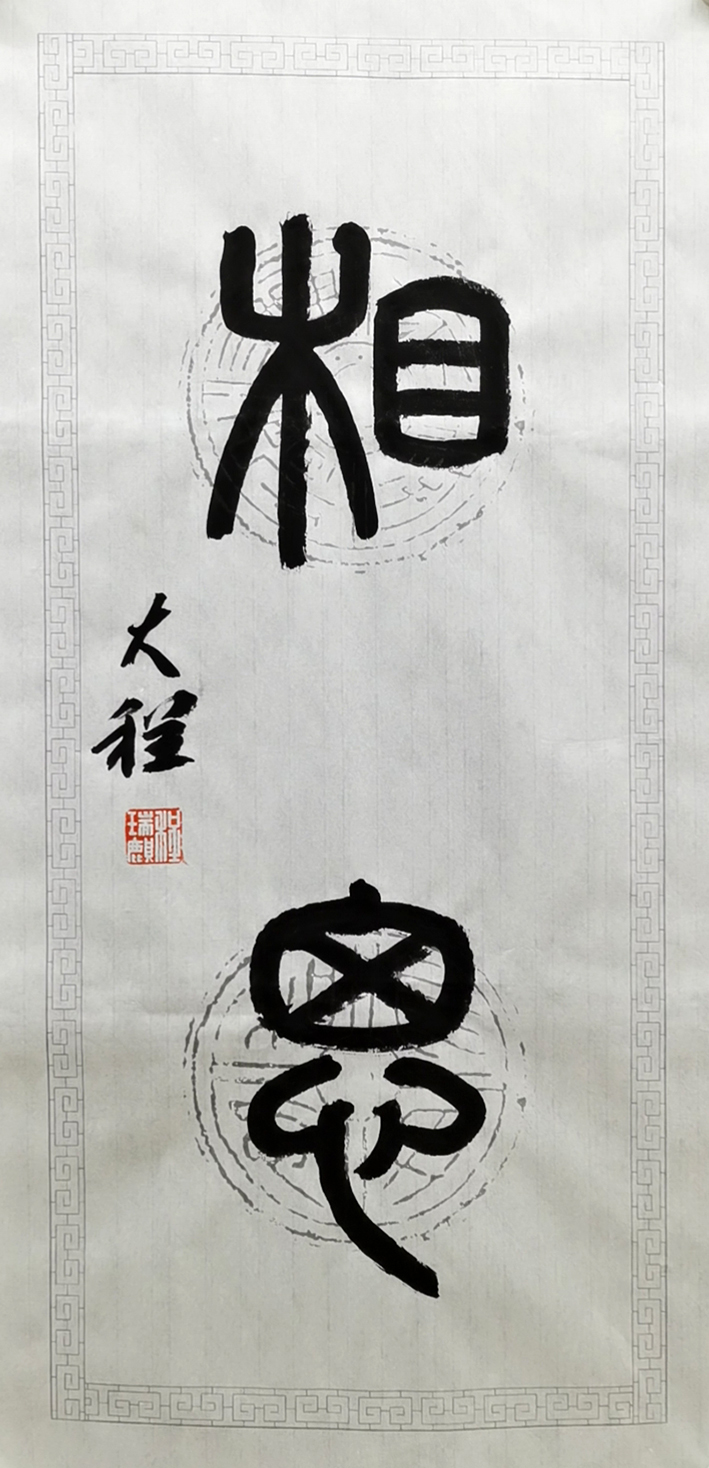 相思
大程
程瑞麒